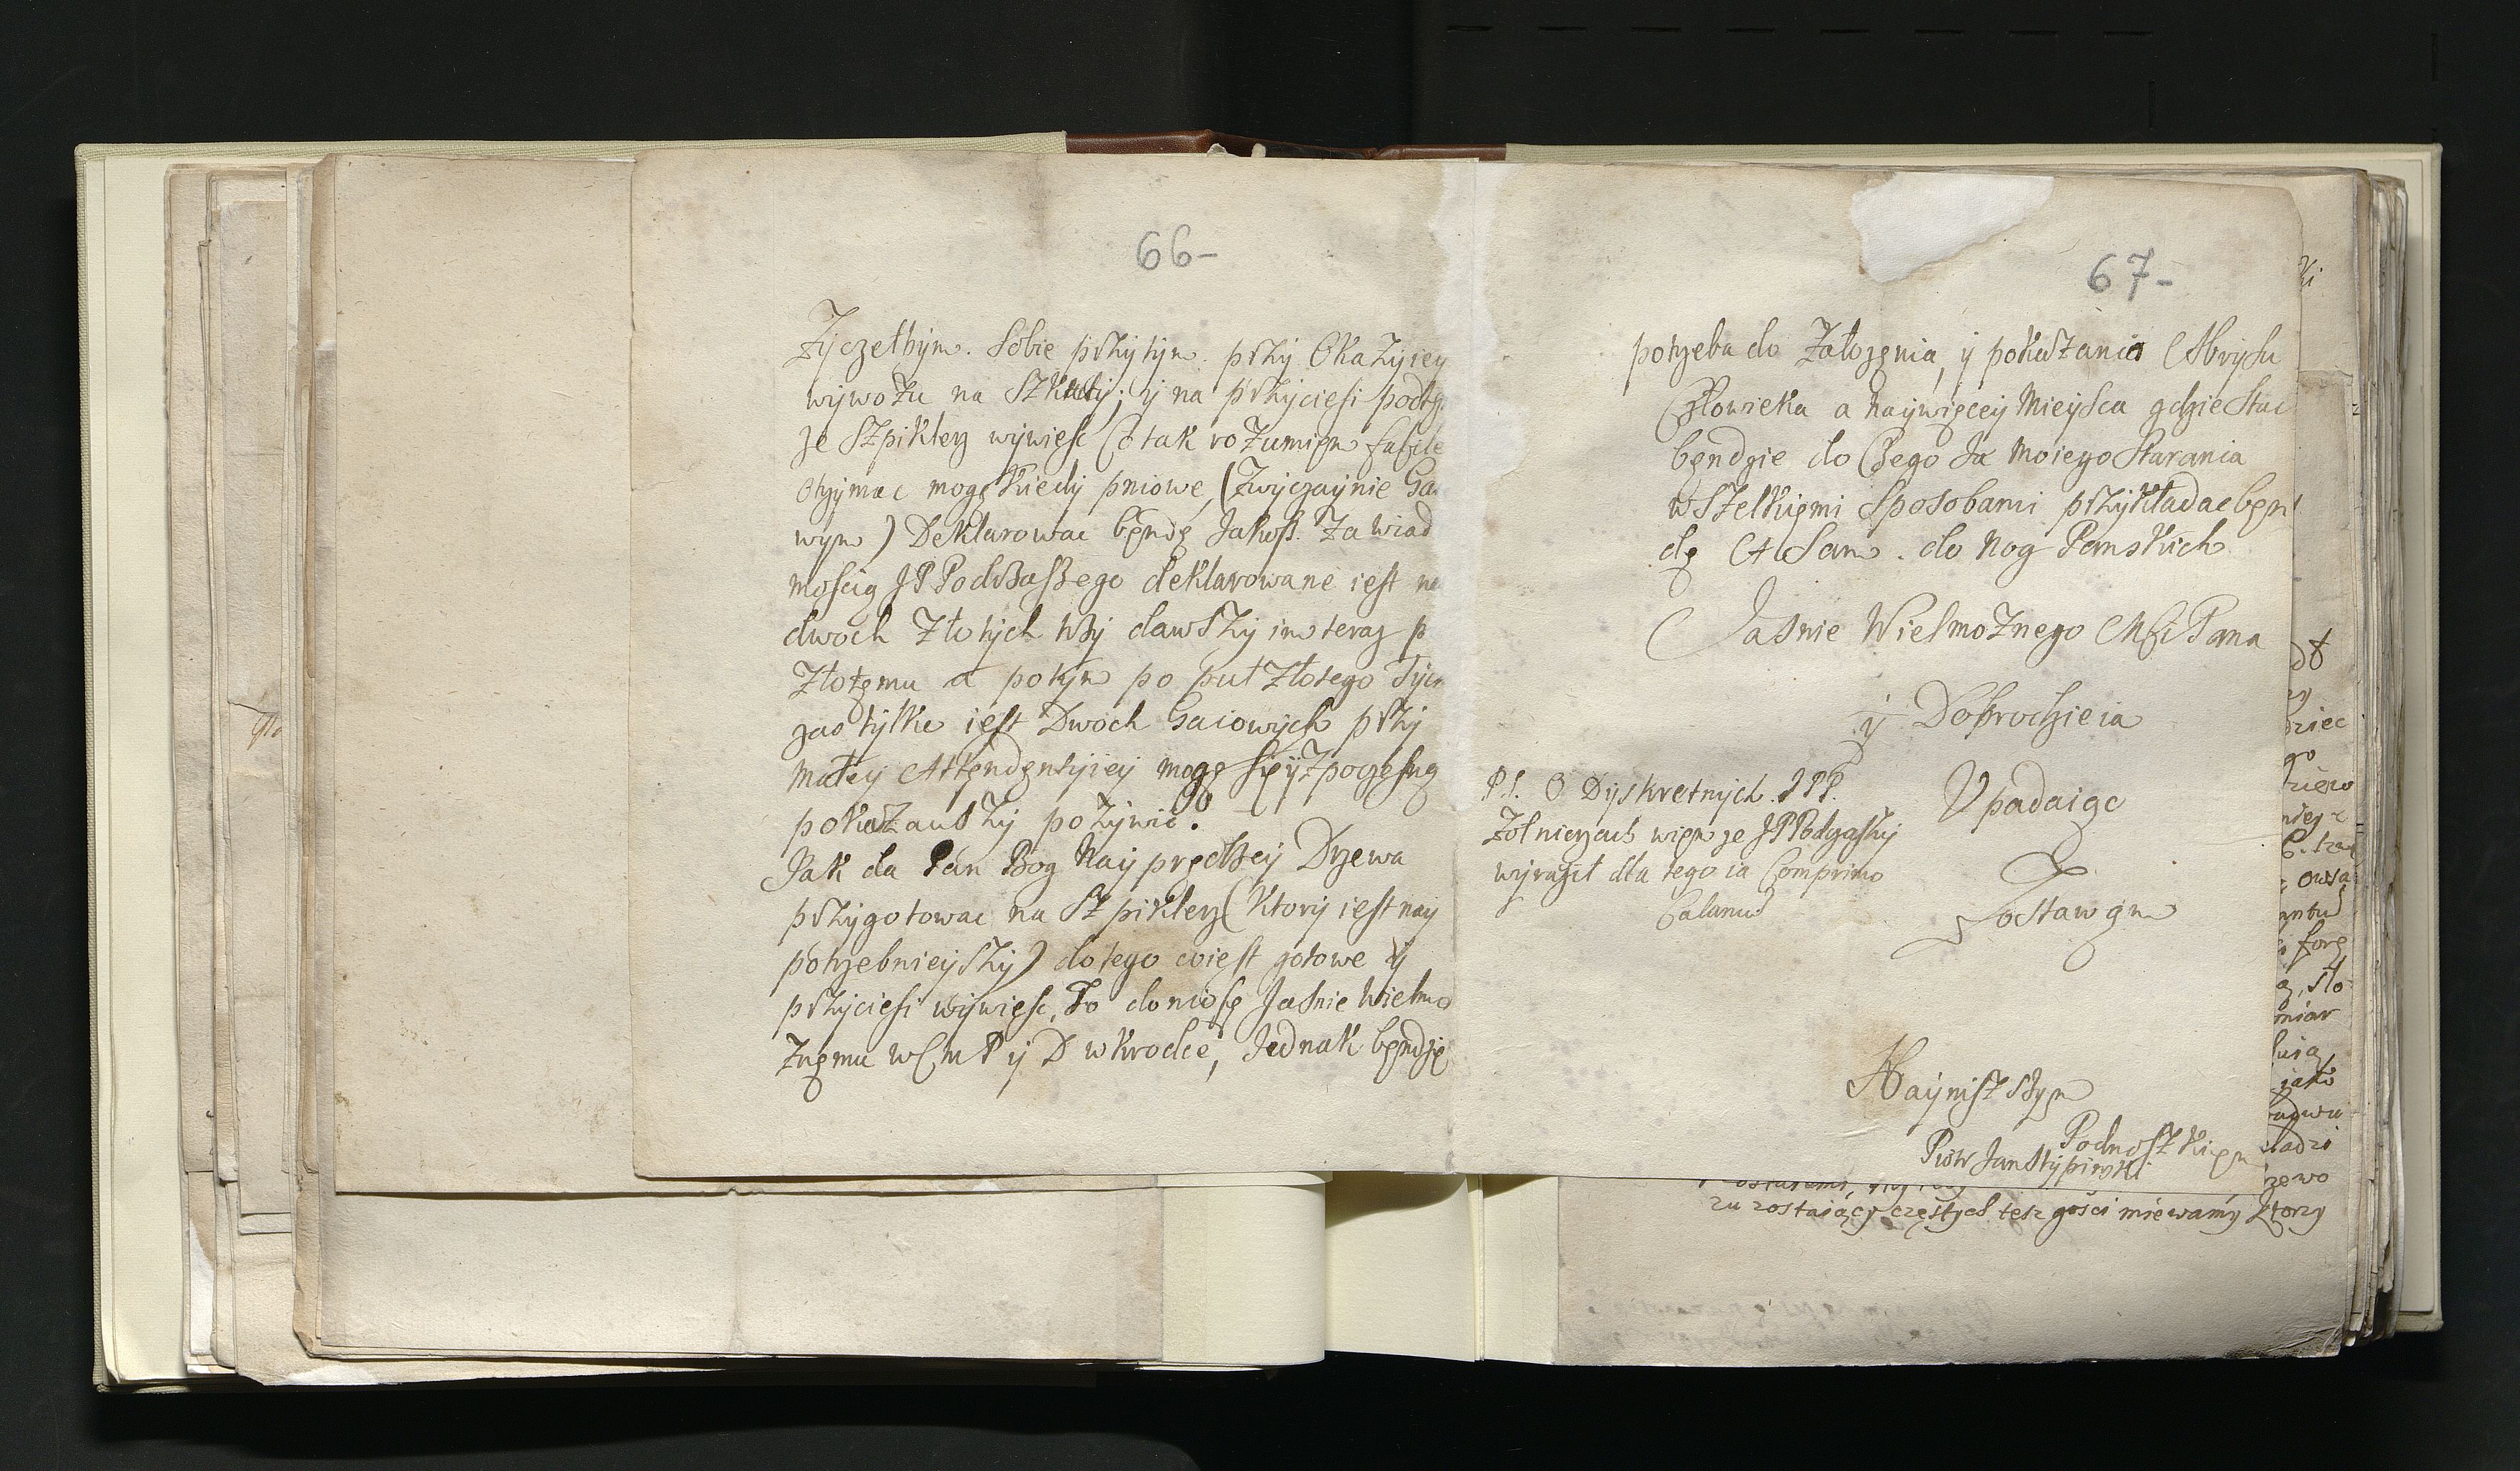 66-
Zyczełbym. Sobie przytym. przy Okazyiey
wywozu na Szkuty; y na przyciesi podłg.
ze Szpiklerz wywiesc Co tak rozumięm
otrzymac mogę Kiedy pniowe, (Zwyczaynie Ga
wym) Deklarowac będę Jakoß. Za wiad
moscią JP Podczaszego deklarowane iest na
dwoch Złotych trzy dawszy im teraz p
Złotęmu a potym po puł Złotego Tym
zas tylko iest Dwoch Gaiowych przy
małey Attęndęntyiey mogę się y z poczesną
pokazawszy pożywić.
Jak da Pan Bog Nayprędzey Drzewa
przygotowac na Szpiklerz (Ktory iest nay
potrzebnieyszy) do tego co iest gotowe y
przyciesi wywięsc, To doniosę Jasnie Wielmo
żnęmu WMP y D wkrodce, Jednak będzie
67-
potrzeba do Założęnia, y pokazania Abrysu
Człowieka a naywięcey Mieysca gdzie Stac
bęndzie do Czego Ja Moiego Starania
wszelkięmi Sposobami przykładac bęn
dę A Sam. do Nog Panskich
Jasnie Wielmożnego Mści Pana
y Dobrodzieia
Upadaiąc
Zostawąm
P.S. O Dyskretnych. JPP.
Żołnierzach więm że JP Podczaszy
wyraził dla tego ia Comprimo
Calamum
Nayniższym
Podnoszkięm
Piotr Jan Stypinski
zu zostaiący częstych tesz gosci miewamy Ktorzy